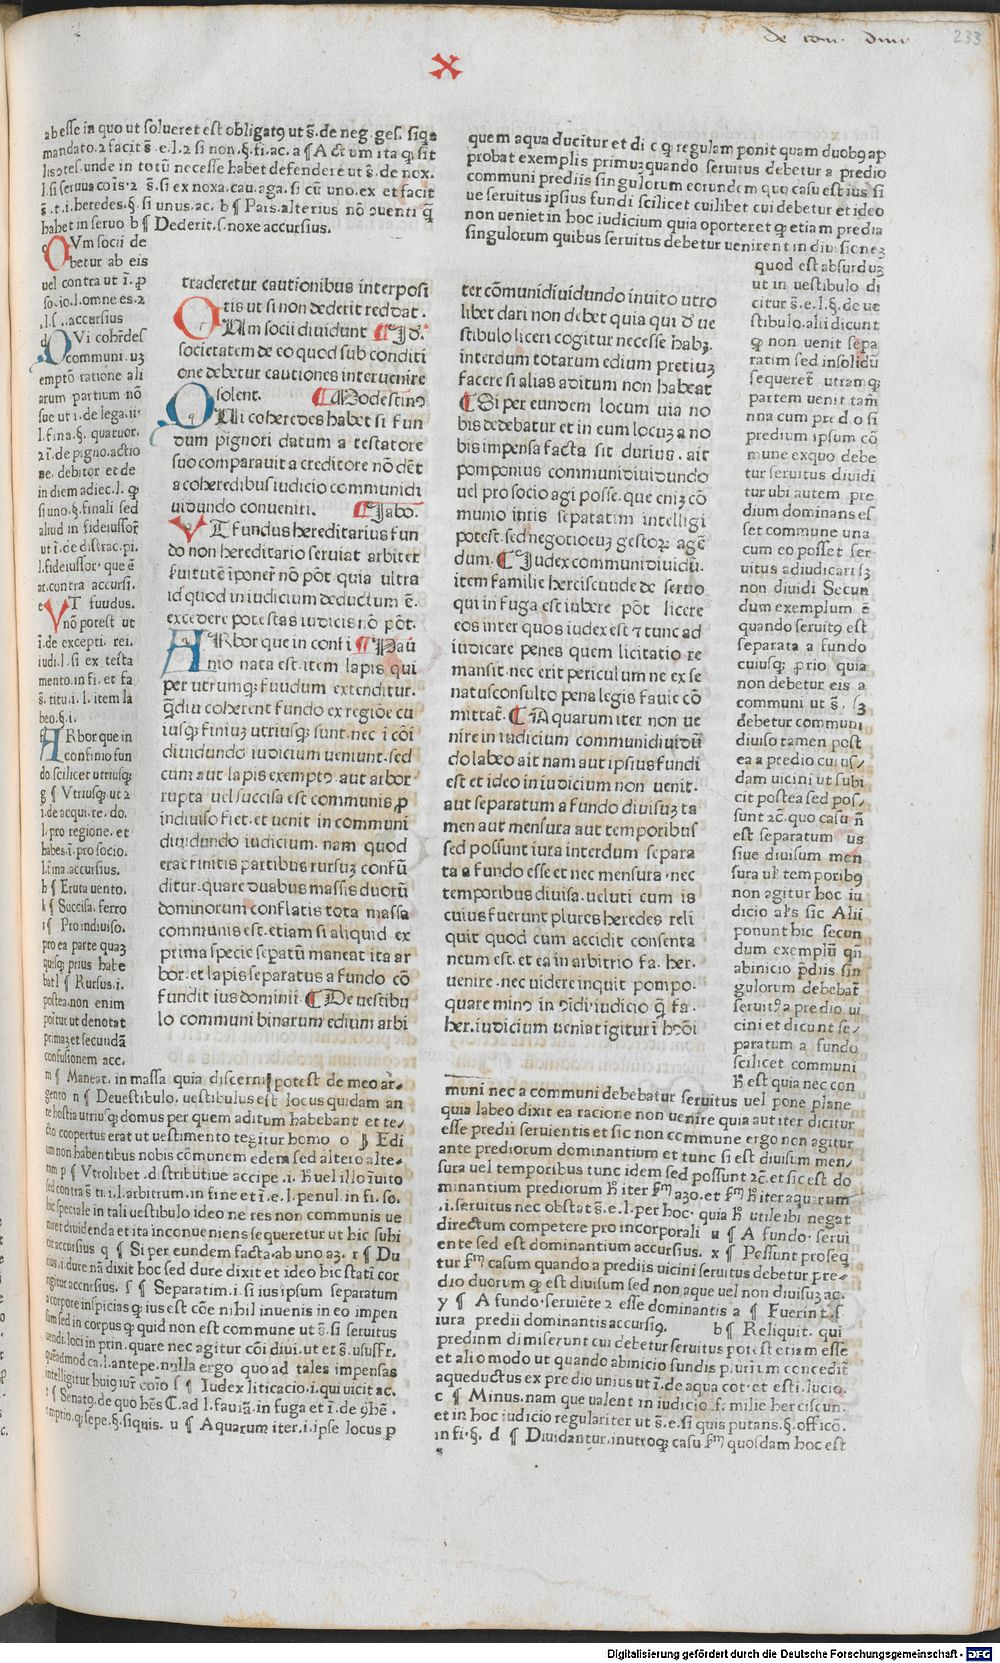 de com. diui
233
X
abesse in quo ut solueret est obligatꝰ ut s̄. de neg. ges. siqs
mandato. ⁊ facit s̄. e. l. ⁊ si non. §. fi. ac. a ¶ Actum ita ꝙ sit
lis
tes. unde in totū necesse habet defendere ut s̄. de nox.
l. si seruus cōis. ⁊ s̄. si ex noxa. cau. aga. si cū uno. ex et facit
s̄. t. i. heredes. §. si unus. ac. b ¶ Pars. alterius nō ɔuenti q̄
habet in seruo b ¶ Dederit. s. noxe accursius.
CVm socii de
betur ab eis
uel contra ut ī. ꝓ
so. io. l. omnes. ⁊
accursius
QVi coh'des
communi. uꝫ
emptō ratione ali
arum partium nō
sue ut i. de lega. ii.
l. fina. §. quatuor.
⁊ ī. de pigno. actio
ne. debitor et de
in diem adiec. l. ꝙ
si uno. §. finali sed
aliud in fideiussor̄
ut i. de distrac. pi.
l. fideiussor. que ē
ar. contra accursi.
e VT fuudus.
nō potest ut
i. de excepti. rei.
iudi. l. si ex testa
mento. in fi. et fa
s̄. titu. i. l. item la
beo. §. i.
ARbor que in
confinio fun
do. scilicet utriusꝙ
g ¶ Vtriusꝙ. ut ⁊
i. de acqui. re. do.
l. pro regione. et
habes. i. pro socio.
l. fina. accursius.
h ¶ Eruta uento.
k ¶ Succisa. ferro
¶ Pro indiuiso.
pro ea parte quaꝫ
quisꝙ prius habe
bat l ¶ Rursus. i.
postea. non enim
poītur ut denotat
primaꝫ et secundā
confusionem acc.
traderetur cautionibus interposi
tis ut si non dederit reddat.
CVm socii diuidunt ¶ Id.
societatem de eo quod sub conditi
one debetur cautiones interuenire
solent. ¶ Modestinꝰ
QVi coheredes habet si fun
dum pignori datum a testatore
suo comparauit a creditore nō dēt
a coheredibus iudicio communidi
uidundo conueniri. ¶ Iabo.
VT fundus hereditarius fun
do non hereditario seruiat arbiter
seruitutē īponer̄ nō pōt. quia ultra
id quod in iudicium deductum ē.
excedere potestas iudicis nō pōt.
ARbor que in confi ¶ Pau
nio nata est. item lapis qui
per utrumqꝫ fuudum extenditur.
q̄diu coherent fundo ex regiōe cu
iusqꝫ finiuꝫ utriusqꝫ sunt. nec ī cōi
diuidundo iudicium ueniunt. sed
cum aut lapis exemptꝰ aut arbor
rupta uel succisa est communis ꝓ
indiuiso fiet. et uenit in communi
diuidundo iudicium. nam quod
erat finitis partibus rursuꝫ confū
ditur. quare duabus massis duorū
dominorum conflatis tota massa
communis est. etiam si aliquid ex
prima specie sepatū maneat ita ar
bor. et lapis separatus a fundo cō
fundit ius dominii. ¶ De uestibu
lo communi binarum edium arbi
m ¶ Maneat. in massa quia discerni potest de meo ar-
gento n ¶ De uestibulo. uestibulus est locus quidam an
te hostia utriusqꝫ domus per quem aditum habebant et te-
cto coopertus erat ut uestimento tegitur homo o ¶ Edi
um non habentibus nobis cōmunem edem sed altero alte-
ram p ¶ Vtrolibet. distributiue accipe. i. h' uel illo īuito
sed contra s̄ ti. i. l. arbitrum. in fine et ī. e. l. penul. in fi. so.
hic speciale in tali uestibulo ideo ne res non communis ue
niret diuidenda et ita inconueniens sequeretur ut hic subi
cit accursius q ¶ Si per eundem facta. ab uno aꝫ. r ¶ Du
rius. i. dure nā dixit hoc sed dure dixit et ideo hic stati cor
rigitur accursius. s ¶ Separatim. i. si ius ipsum separatum
a corpore inspicias qꝫ ius est cōe nihil inuenis in eo impen
sum sed in corpus qꝫ quid non est commune ut s̄. si seruitus
uendi. loci in prin. quare nec agitur cōi diui. ut et s̄. ususfr.
quēadmod ca. l. antepe. nulla ergo quo ad tales impensas
intelligitur huiꝰ iur̄ cōio s ¶ Iudex licitacio. i. qui uicit ac.
t ¶ Senatꝰ. de quo h'es C. ad l. fauiā. in fuga et ī. de ꝯh'ē.
emptio. qꝫ sepe. §. siquis. u ¶ Aquarum iter. i. ipse locus ꝑ
quem aqua ducitur et dic ꝙ regulam ponit quam duobꝰ ap
probat exemplis primuꝫ quando seruitus debetur a predio
communi prediis singulorum eorundem quo casu est ius si
ue seruitus ipsius fundi scilicet cuilibet cui debetur et ideo
non ueniet in hoc iudicium quia oporteret ꝙ etiam predia
singulorum quibus seruitus debetur uenirent in diuisioneꝫ
quod est absurduꝫ
ut in uestibulo di
citur s̄. e. l. §. de ue
stibulo. alii dicunt
ꝙ non uenit sepa
ratim sed insolidū
sequeret̄ utramqꝫ
partem uenit tam̄
nna cum predio si
predium ipsum cō
mune exquo debe
tur seruitus diuidi
tur ubi autem pre
dium dominans es
set commune una
cum eo posset ser
uitus adiudicari sꝫ
non diuidi Secun
dum exemplum ē
quando seruitꝰ est
separata a fundo
cuiusqꝫ ꝓrio quia
non debetur eis a
communi ut s̄. sꝫ
debetur communi
diuiso tamen post
ea a predio cuius-
dam uicini ut subi
cit postea sed pos-
sunt ⁊c. quo casu n̄
est separatum us
siue diuisum men
sura ul' temporibꝰ
non agitur hoc iu
dicio al's sic Alii
ponunt hic secun
dum exemplū qn̄
abinicio p̄diis sin
gulorum debebat̄
seruitꝰ a predio ui
cini et dicunt se-
paratum a fundo
scilicet communi
h' est quia nec con
ter cōmunidiuidundo inuito utro
libet dari non debet quia qui d' ue
stibulo liceri cogitur necesse habꝫ.
interdum totarum edium pretiuꝫ
facere si alias aditum non habeat
¶ Si per eundem locum uia no
bis debebatur et in eum locuꝫ a no
bis impensa facta sit durius. ait
pomponius communidiuidundo
uel pro socio agi posse. que eniꝫ cō
munio iuris separatim intelligi
potest. sed negotioruꝫ gestoꝝ agē
dum. ¶ Iudex communidiuidū.
item familie herciscuude de seruo
qui in fuga est iubere pōt licere
eos inter quos iudex est ⁊ tunc ad
iudicare penes quem licitatio re
mansit. nec erit periculum ne ex se
natusconsulto pena legis fauie cō
mittat̄. ¶ Aquarum iter non ue
nire in iudicium communidiuidū
do labeo ait nam aut ipsius fundi
est et ideo in iudicium non uenit.
aut separatum a fundo diuisuꝫ ta
men aut mensura aut temporibus
sed possunt iura interdum separa
ta a fundo esse et nec mensura. nec
temporibus diuisa. ueluti cum is
cuius fuerunt plures heredes reli
quit quod cum accidit consenta
neum est. et ea in arbitrio fa. her.
uenire. nec uidere inquit pompo.
quare minꝰ in ꝯidi. iudicio q̄ fa.
her. iudicium ueniat igitur ī h'ōi
muni nec a communi debebatur seruitus uel pone plane
quia labeo dixit ea racione non uenire quia aut iter dicitur
esse predii seruientis et sic non commune ergo non agitur
ante prediorum dominantium et tunc si est diuisum men-
sura uel temporibus tunc idem sed possunt ⁊c. et sic est do
minantium prediorum h' iter s'm aꝫo. et s'm h' iter aquarum
.i. seruitus nec obstat s̄. e. l. per hoc. quia h' utile ibi negat
directum competere pro incorporali u ¶ A fundo. serui
ente sed est dominantium accursius. x ¶ Possunt proseq
tur s'm casum quando a prediis uicini seruitus debetur pre-
dio duorum qꝫ est diuisum sed non aque uel non diuisuꝫ ac.
y ¶ A fundo. seruiēte ⁊ esse dominantis a ¶ Fuerint. s.
iura predii dominantis accursiꝰ. b ¶ Reliquit. qui
predium dimiserunt cui debetur seruitus potest etiam esse
et alio modo ut quando abinicio fundis plurium concedit̄
aqueductus ex predio unius ut ī. de aqua cot. et esti. lucio.
c ¶ Minus. nam que ualent in iudicio familie herciscun.
et in hoc iudicio regulariter ut s̄. e. si quis putans. §. officō.
in fi. §. d ¶ Diuidantur. in utroqꝫ casu s'm quosdam hoc est
Digitalisierung gefördert durch die Deutsche Forschungsgemeinschaft - DFG